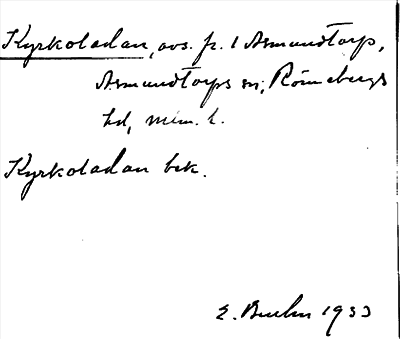 Kyrkoladan, avs. fr. 1 Asmundtorp,
Asmundtorps sn, Rönnebergs
hd, Mlm. l.
Kyrkoladan bek.
E. 1933